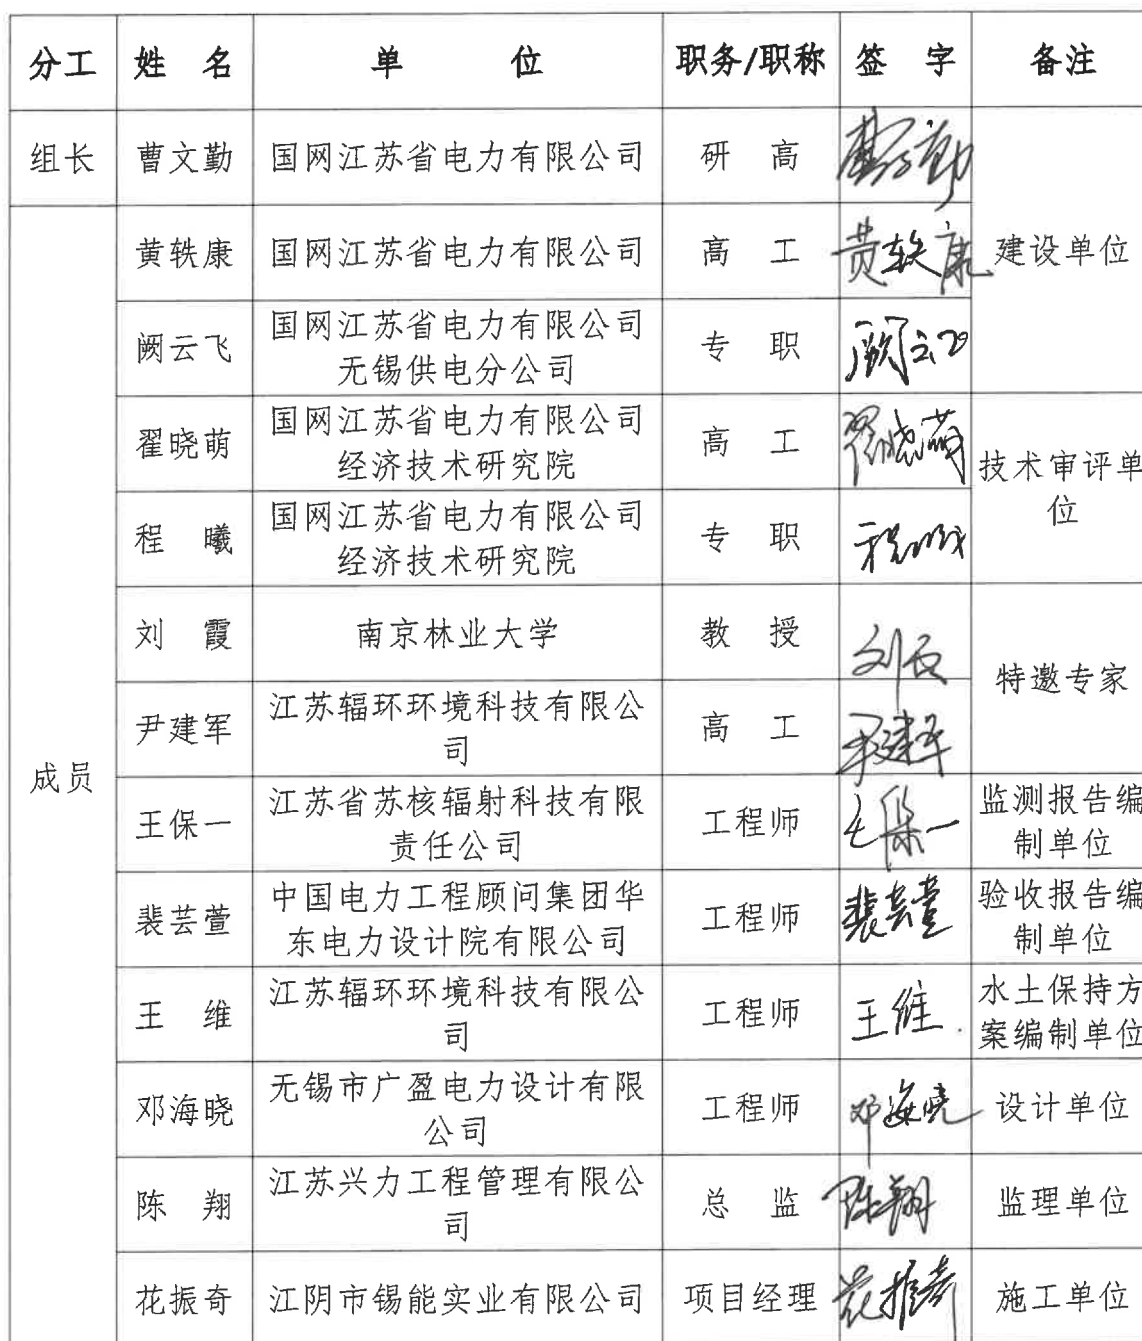 分工 姓 名 单 位 职务/职称 签 字 备注
组长 曹文勤 国网江苏省电力有限公司 研 高 曹文勤
黄轶康 国网江苏省电力有限公司 高 工 黄轶康 建设单位
阙云飞 国网江苏省电力有限公司
无锡供电分公司 专 职 阙云飞
翟晓萌 国网江苏省电力有限公司
经济技术研究院 高 工 翟晓萌 技术审评单
位
程 曦 国网江苏省电力有限公司
经济技术研究院 专 职 程曦
刘 霞 南京林业大学 教 授 刘霞
特邀专家
尹建军 江苏辐环环境科技有限公
司 高 工 尹建军
成员
王保一 江苏省苏核辐射科技有限
责任公司 工程师 王保一 监测报告编
制单位
裴芸萱 中国电力工程顾问集团华
东电力设计院有限公司 工程师 裴芸萱 验收报告编
制单位
王 维 江苏辐环环境科技有限公
司 工程师 王维 水土保持方
案编制单位
邓海晓 无锡市广盈电力设计有限
公司 工程师 邓海晓 设计单位
陈 翔 江苏兴力工程管理有限公
司 总 监 陈翔 监理单位
花振奇 江阴市锡能实业有限公司 项目经理 花振奇 施工单位